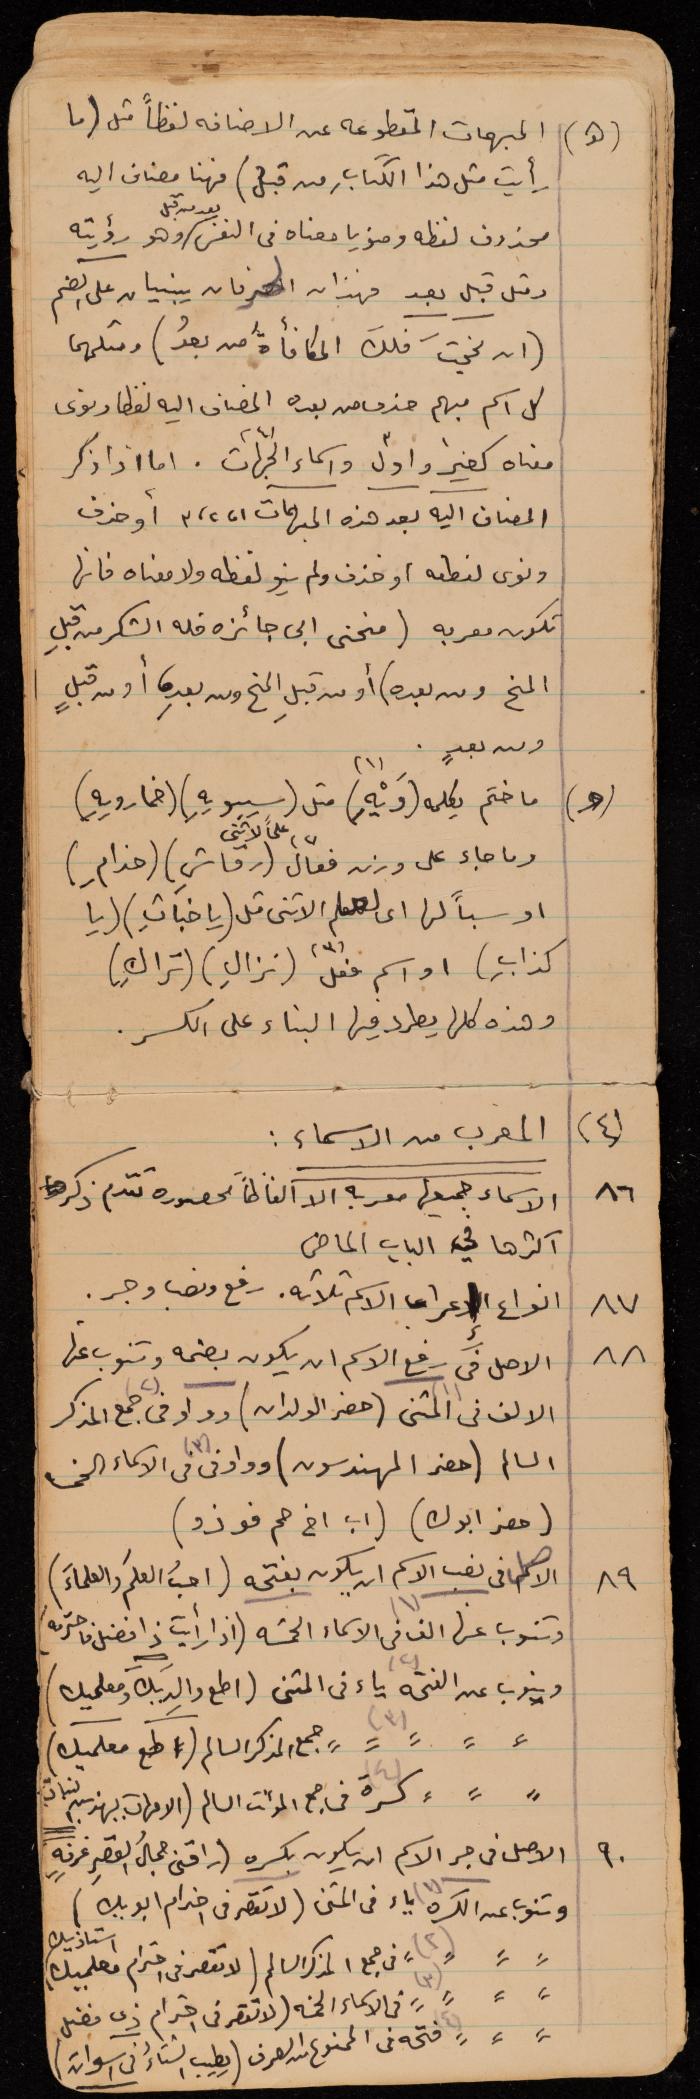 (٥) المبهمات المقطوعه عن الاضافه لفظاً مثل (ما
رأيت مثل هذا الكتاب من قبلُ) فهنا مضاف اليه
محذوف لفظه ومنويا معناه فى النفس وهو رؤيته
بعد من قبل
ومثل قبل بعد فهذان الحرفان يبنيان على الضم
(ان نجحت فلك المكافأة من بعدُ) ومثلهما
كل اسم مبهم حذف من بعده المضاف اليه لفظا ونوى
معناه كغير واول واسماء الجهات . اما اذا ذكر
المضاف اليه بعد هذه المبهمات ١، ٢، ٣ أو حذف
ونوى لفظه او حذف ولم ينو لفظه ولا معناه فانها
تكون معربه (منحنى ابى جائزه فله الشكر من قبلِ
المنح ومن بعده) أو من قبلِ المنح ومن بعدِ أو من قبلٍ
ومن بعدٍ .
ما ختم بكلمه (وَيْهِ) (١) مثل (سيبويهِ) (خمارويهِ)
وما جاء على وزن فعالِ (٢) علماً لأنثى (رقاشِ) (حذامِ)
او سباً لها اى الانثى مثل (يا خباثِ) (يا
كذابِ) او اسم فعل (٣) (نزالِ) (تراكِ)
وهذه كلها يطرد فيها البناء على الكسر .
(٤) المعرب من الاسماء :
٨٦ الاسماء جميعها معربه الا الفاظاً محصوره تقدم ذكر
اكثرها في الباب الماضى
٨٧ انواع اعراب الاسم ثلاثه . رفع ونصب وجر .
٨٨ الاصل فى رفع الاسم ان يكون بضمه وتنوب عنها
الالف فى المثنى (١) (حضر الولدان) وواو فى جمع المذكر (٢)
السالم (حضر المهندسون) وواو فى الاسماء الخمسه (٣)
(حضر ابوك) (اب اخ حم فو ذو)
٨٩ الاصل فى نصب الاسم ان يكون بفتحه (احبُ العلمَ والعلماءَ)
وتنوب عنها الف فى الاسماء الخمسه (١) (اذا رأيت ذا فضل فاحترمه)
وينوب عن الفتحه ياء فى المثنى (٢) (اطع والديك ومعلميك)
〃 〃 〃 〃 〃 جمع المذكر السالم (٣) (اطع معلميك)
〃 〃 〃 كسرة فى جمع المؤنث السالم (٤) (الامهات يهذبن البنات)
٩٠ الاصل فى جر الاسم ان يكون بكسره (راقنى جمالُ القصرِ غرفهِ)
وتنوب عن الكسره ياء فى المثنى (١) (لا تقصر فى احترام ابويك)
〃 〃 〃 〃 فى جمع المذكر السالم (٢) (لا تقصر فى احترام معلميك)
استاذيك
〃 〃 〃 〃 فى الاسماء الخمسه (٣) (لا تقصر فى احترام ذى فضل)
〃 〃 〃 فتحه فى الممنوع من الصرف (٤) (يطيب الشتاءُ فى اسوانَ)